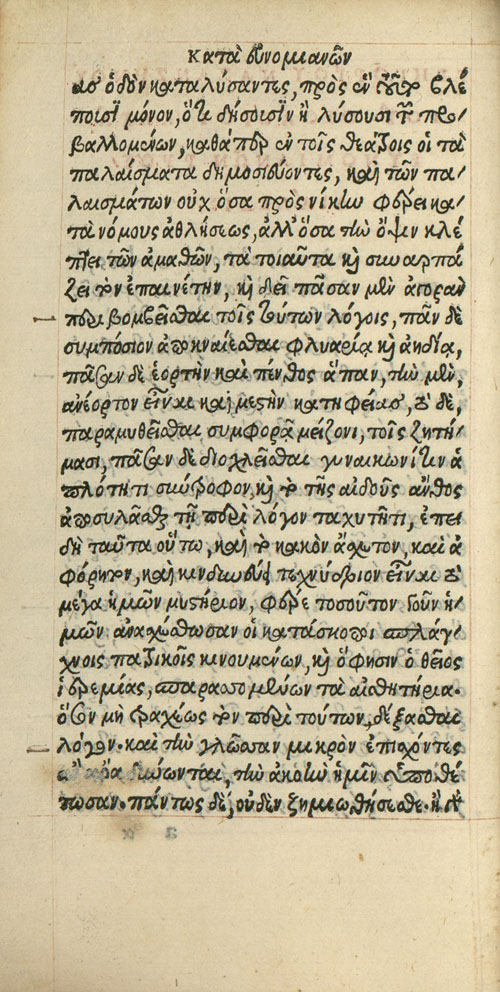 Κατὰ εὐνομιανῶν
ας ὁδὸν καταλύσαντες, πρὸς ἓν τοῦτο βλέ
πουσι μόνον, ὅ τι δήσουσιν ἢ λύσουσι τῶν προ
βαλλομένων, καθάπερ ἐν τοῖς θεάτροις οἱ τὰ
παλαίσματα δημοσιεύοντες, καὶ τῶν πα
λαισμάτων οὐχ ὅσα πρὸς νίκην φέρει κα
τὰ νόμους ἀθλήσεως, ἀλλ' ὅσα τὴν ὄψιν κλέ
πτει τῶν ἀμαθῶν, τὰ τοιαῦτα καὶ συναρπά
ζει τὸν ἐπαινέτην, καὶ δεῖ πᾶσαν μὲν ἀγορὰν
περιβομβεῖσθαι τοῖς τούτων λόγοις, πᾶν δὲ
συμπόσιον ἀποκναίεσθαι φλυαρία καὶ ἀηδία,
πᾶσαν δὲ ἑορτὴν καὶ πένθος ἅπαν, τὴν μὲν,
ἀνέορτον εἶναι καὶ μεστὴν κατηφείας, τὸ δὲ,
παραμυθεῖσθαι συμφορᾶ μείζονι, τοῖς ζητή
μασι, πᾶσαν δὲ διοχλεῖσθαι γυναικωνῖτιν ἁ
πλότητι σύντροφον, καὶ τὸ τῆς αἰδοῦς ἄνθος
ἀποσυλᾶσθαι τῇ περὶ λόγον ταχυτῆτι, ἐπει
δὴ ταῦτα οὕτω, καὶ τὸ κακὸν ἄσχετον, καὶ ἀ
φόρητον, καὶ κινδυνεύει τεχνύδριον εἶναι τὸ
μέγα ἡμῶν μυστήριον, φέρε τοσοῦτον γοῦν ἡ
μῶν ἀνασχέσθωσαν οἱ κατάσκοποι σπλάγ
χνοις πατρικοῖς κινουμένων, καὶ ὅ φησιν ὁ θεῖος
ἱερεμίας, σπαρασσομένων τὰ αἰσθητήρια.
ὅσον μὴ τραχέως τὸν περὶ τούτων, δέξασθαι
λόγον. καὶ τὴν γλῶσσαν μικρὸν ἐπισχόντες
ἄρα δύνωνται, τὴν ἀκοὴν ἡμῖν ὑποθέ
τωσαν. πάντως δὲ, οὐδὲν ζημιωθήσεσθε. ἢ γὰρ